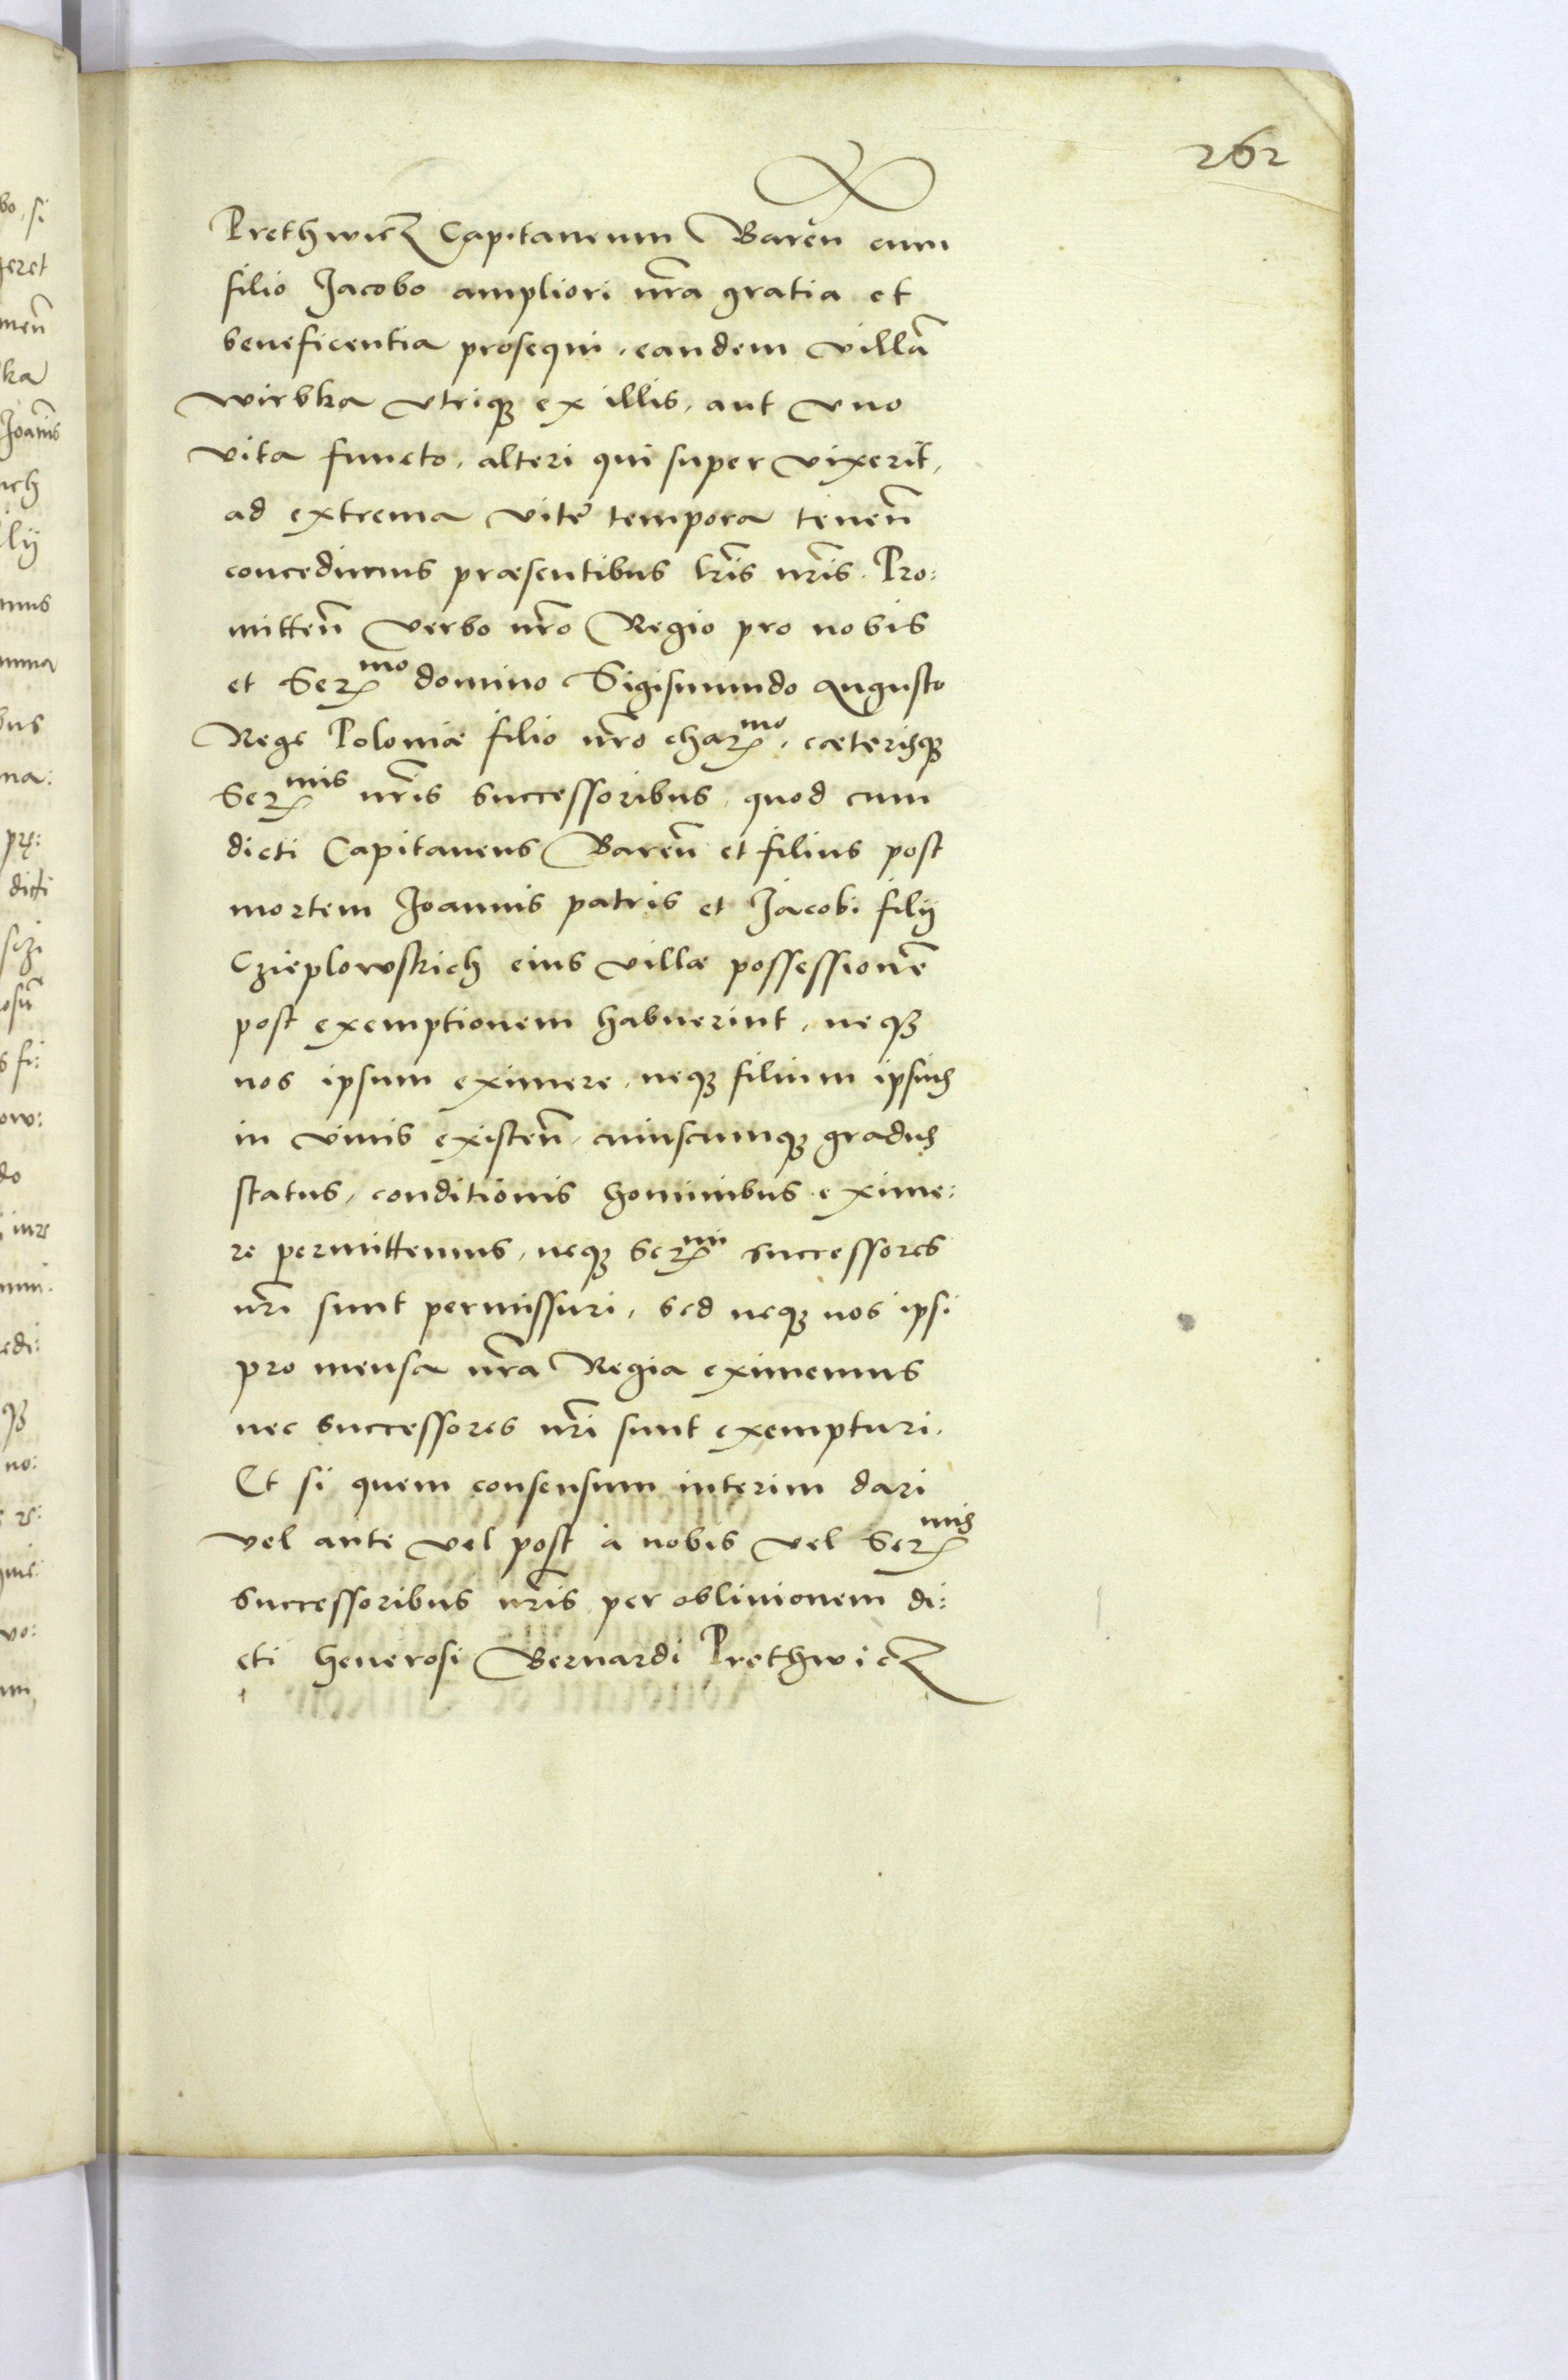 262
Prethwicz Capitaneum Baren̄ cum
filio Jacobo ampliori nr̃a gratia et
beneficentia prosequi, eandem villã
wirbka vtriqꝫ ex illis, aut vno
vita functo, alteri qui super vixerit,
ad extrema vitę tempora tenen̄
concedimus præsentibus lr̃is nr̃is. Pro:
mitten̄ verbo nr̃o Regio pro nobis
et Serᵐᵒ domino Sigismundo Augusto
Rege Poloniæ filio nr̃o charᵐᵒ, cæterisqꝫ
Serᵐⁱˢ nr̃is successoribus, quod cum
dicti Capitaneus Baren̄ et filius post
mortem Joannis patris et Jacobi filij
Czieplowskich eius villæ possessionẽ
post exemptionem habuerint, neqꝫ
nos ipsum eximere, neqꝫ filium ipsius
in viuis existen̄, cuiuscumqꝫ gradus
status, conditionis hominibus exime:
re permittemus, neqꝫ Serᵐⁱ successores
nr̃i sunt permissuri, sed neqꝫ nos ipsi
pro mensa nr̃a Regia eximemus
nec successores nr̃i sunt exempturi.
Et si quem consensum interim dari
vel ante vel post à nobis vel Serᵐⁱˢ
successoribus nr̃is per obliuionem di:
cti Generosi Bernardi Prethwicz